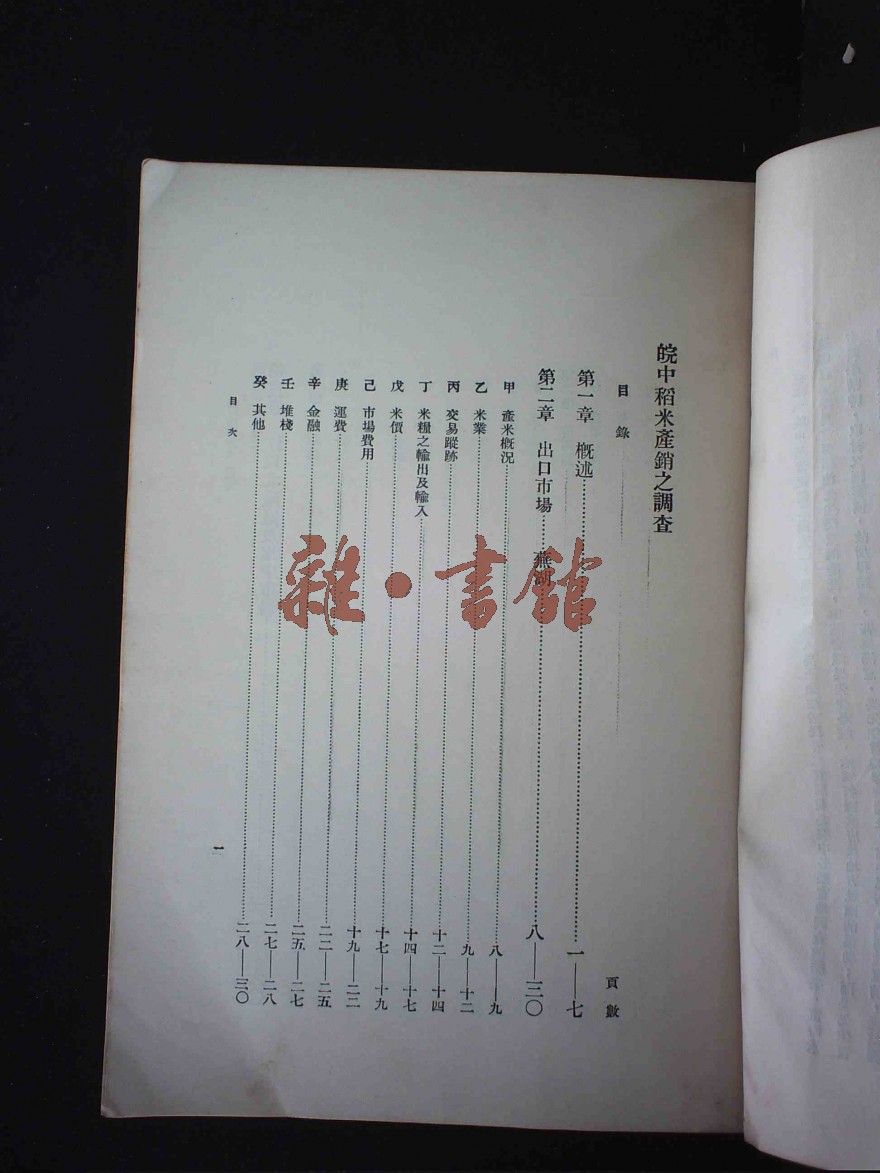 皖中稻米產銷之調查
目錄
頁數
第一章 概述 一——七
第二章 出口市場 蕪湖 八——三〇
甲 產米概況 八——九
乙 米業 九——十二
丙 交易蹤跡 十二——十四
丁 米糧之輸出及輸入 十四——十七
戊 米價 十七——十九
己 市場費用 十九——二二
庚 運費 二二——二五
辛 金融 二五——二七
壬 堆棧 二七——二八
癸 其他 二八——三〇
目次
一
雜·書館